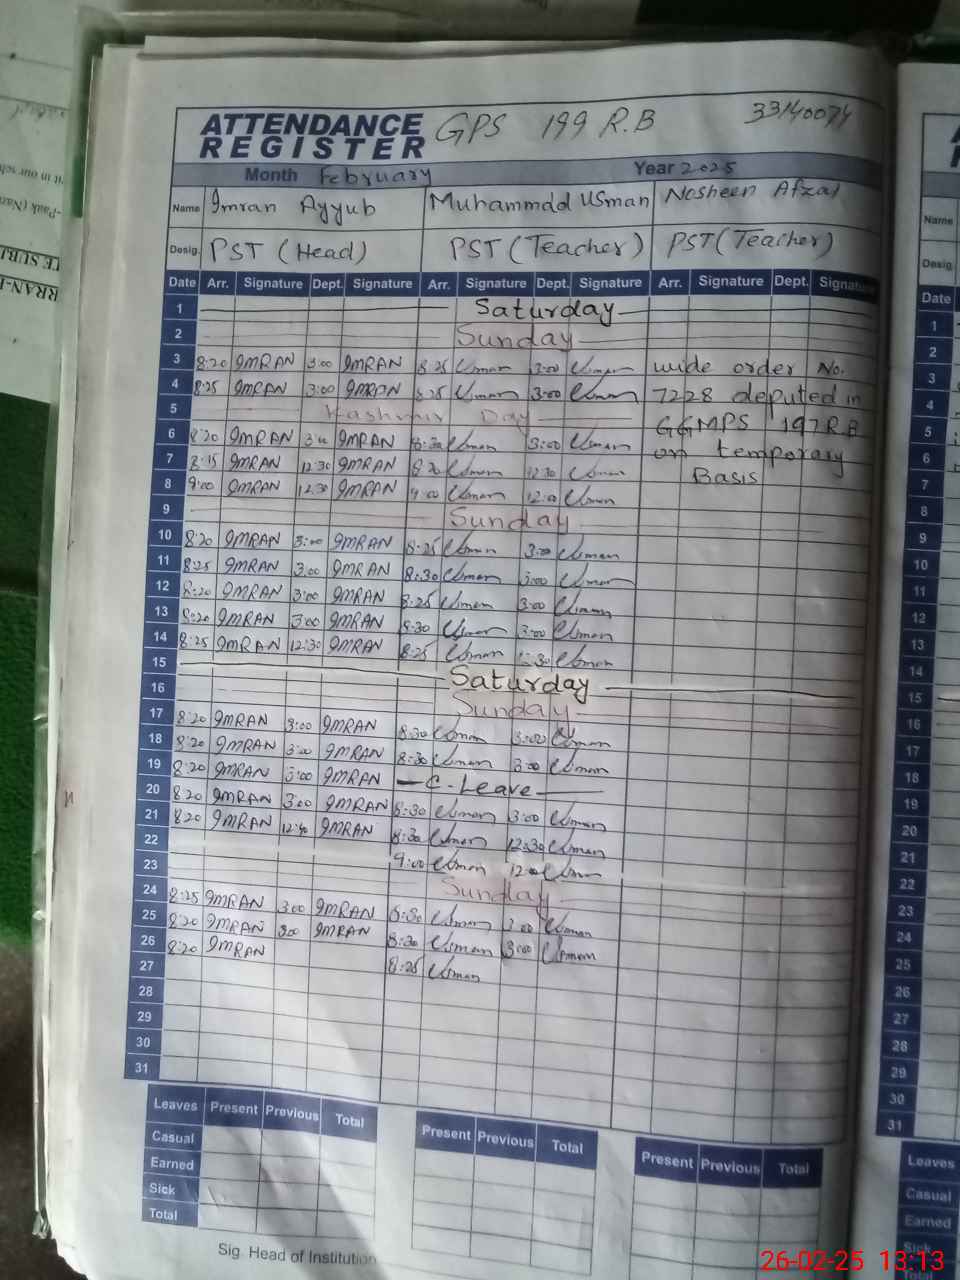 ATTENDANCE REGISTER GPS 199 R.B 33140074
Month February Year 2025
Name Imran Ayyub Muhammdd Usman Nosheen Afzal
Desig. PST (Head) PST (Teacher) PST (Teacher)
Date Arr. Signature Dept. Signature Arr. Signature Dept. Signature Arr. Signature Dept. Signature
1 Saturday
2 Sunday
3 8:20 IMRAN 3:00 IMRAN 8:25 Usman 3:00 Usman wide order No.
4 8:25 IMRAN 3:00 IMRAN 8:25 Usman 3:00 Usman 7228 deputed in
5 Kashmir Day GGMPS 197 R.B
6 8:20 IMRAN 3:00 IMRAN 8:30 Usman 3:00 Usman on temporary
7 8:15 IMRAN 12:30 IMRAN 8:20 Usman 12:30 Usman Basis
8 9:00 IMRAN 12:30 IMRAN 9:00 Usman 12:00 Usman
9 Sunday
10 8:20 IMRAN 3:00 IMRAN 8:25 Usman 3:00 Usman
11 8:25 IMRAN 3:00 IMRAN 8:30 Usman 3:00 Usman
12 8:20 IMRAN 3:00 IMRAN 8:25 Usman 3:00 Usman
13 8:20 IMRAN 3:00 IMRAN 8:30 Usman 3:00 Usman
14 8:25 IMRAN 12:30 IMRAN 8:25 Usman 12:30 Usman
15 Saturday
16 Sunday
17 8:20 IMRAN 3:00 IMRAN 8:30 Usman 3:00 Usman
18 8:20 IMRAN 3:00 IMRAN 8:30 Usman 3:00 Usman
19 8:20 IMRAN 3:00 IMRAN C-Leave
20 8:20 IMRAN 3:00 IMRAN 8:30 Usman 3:00 Usman
21 8:20 IMRAN IMRAN 8:30 Usman 12:30 Usman
22 9:00 Usman 12:00 Usman
23 Sunday
24 8:25 IMRAN 3:00 IMRAN 8:30 Usman 3:00 Usman
25 8:20 IMRAN 3:00 IMRAN 8:30 Usman 3:00 Usman
26 8:20 IMRAN 8:25 Usman
27
28
29
30
31
Leaves Present Previous Total Present Previous Total Present Previous Total
Casual
Earned
Sick
Total
Sig. Head of Institution
Name
Desig.
Date
1
2
3
4
5
6
7
8
9
10
11
12
13
14
15
16
17
18
19
20
21
22
23
24
25
26
27
28
29
30
31
Leaves
Casual
Earned
Sick
26-02-25 13:13